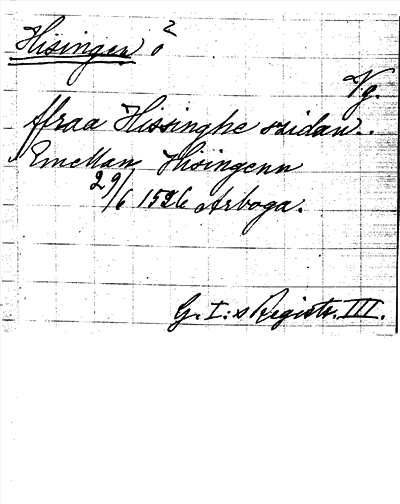 Hisingen ö ?
Vg.
ffraa Hissinghe szidan..
Emellan Hisingenn
29/6 1526 Arboga.
G. I:s Registr. III.